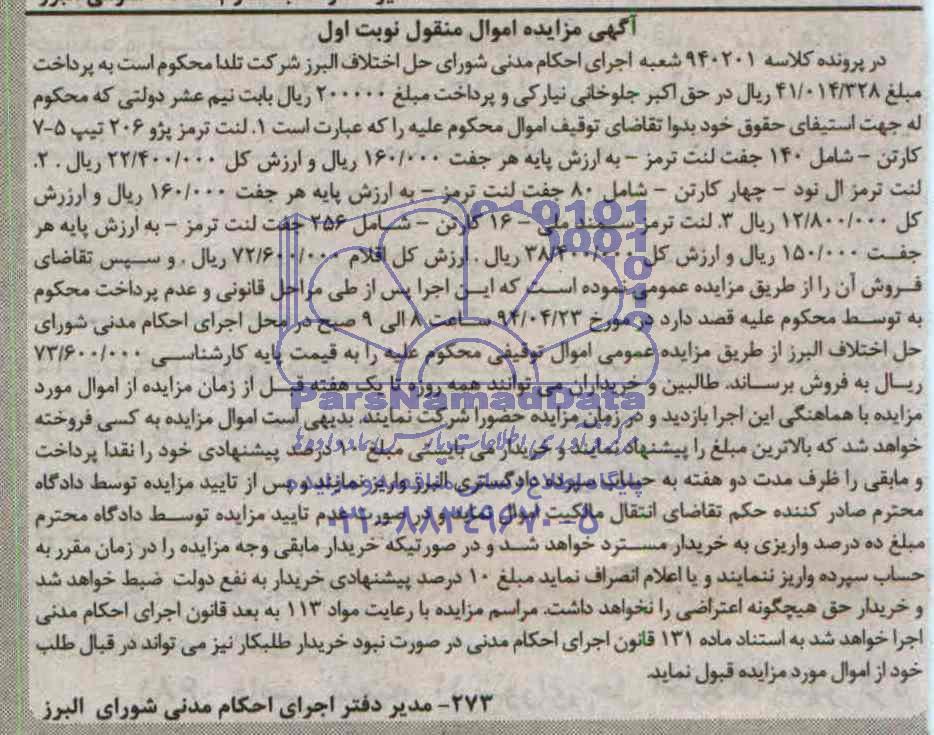 آگهی مزایده اموال منقول نوبت اول
در پرونده کلاسه ۹۴۰۲۰۱ شعبه اجرای احکام مدنی شورای حل اختلاف البرز شرکت تلدا محکوم است به پرداخت
مبلغ ۴۱/۰۱۴/۳۲۸ ریال در حق اکبر جلوخانی نیارکی و پرداخت مبلغ ۲۰۰۰۰۰ ریال بابت نیم عشر دولتی که محکوم
له جهت استیفای حقوق خود بدوا تقاضای توقیف اموال محکوم علیه را که عبارت است ۱. لنت ترمز پژو ۲۰۶ تیپ ۵-۷
کارتن - شامل ۱۴۰ جفت لنت ترمز - به ارزش پایه هر جفت ۱۶۰/۰۰۰ ریال و ارزش کل ۲۲/۴۰۰/۰۰۰ ریال . ۲.
لنت ترمز ال نود - چهار کارتن - شامل ۸۰ جفت لنت ترمز - به ارزش پایه هر جفت ۱۶۰/۰۰۰ ریال و ارزرش
کل ۱۲/۸۰۰/۰۰۰ ریال ۳. لنت ترمز سمند ملی - ۱۶ کارتن - شامل ۲۵۶ جفت لنت ترمز - به ارزش پایه هر
جفت ۱۵۰/۰۰۰ ریال و ارزش کل ۳۸/۴۰۰/۰۰۰ ریال . ارزش کل اقلام ۷۲/۶۰۰/۰۰۰ ریال . و سپس تقاضای
فروش آن را از طریق مزایده عمومی نموده است که این اجرا پس از طی مراحل قانونی و عدم پرداخت محکوم
به توسط محکوم علیه قصد دارد در مورخ ۹۴/۰۴/۲۳ ساعت ۸ الی ۹ صبح در محل اجرای احکام مدنی شورای
حل اختلاف البرز از طریق مزایده عمومی اموال توقیفی محکوم علیه را به قیمت پایه کارشناسی ۷۳/۶۰۰/۰۰۰
ریال به فروش برساند. طالبین و خریداران می توانند همه روزه تا یک هفته قبل از زمان مزایده از اموال مورد
مزایده با هماهنگی این اجرا بازدید و در زمان مزایده حضورا شرکت نمایند. بدیهی است اموال مزایده به کسی فروخته
خواهد شد که بالاترین مبلغ را پیشنهاد نمایند و خریدار می بایستی مبلغ ۱۰ درصد پیشنهادی خود را نقدا پرداخت
و مابقی را ظرف مدت دو هفته به حساب سپرده دادگستری البرز واریز نمایند و پس از تایید مزایده توسط دادگاه
محترم صادر کننده حکم تقاضای انتقال مالکیت اموال نماید و در صورت عدم تایید مزایده توسط دادگاه محترم
مبلغ ده درصد واریزی به خریدار مسترد خواهد شد و در صورتیکه خریدار مابقی وجه مزایده را در زمان مقرر به
حساب سپرده واریز ننمایند و یا اعلام انصراف نماید مبلغ ۱۰ درصد پیشنهادی خریدار به نفع دولت ضبط خواهد شد
و خریدار حق هیچگونه اعتراضی را نخواهد داشت. مراسم مزایده با رعایت مواد ۱۱۳ به بعد قانون اجرای احکام مدنی
اجرا خواهد شد به استناد ماده ۱۳۱ قانون اجرای احکام مدنی در صورت نبود خریدار طلبکار نیز می تواند در قبال طلب
خود از اموال مورد مزایده قبول نماید.
۲۷۳- مدیر دفتر اجرای احکام مدنی شورای البرز
ParsNamadData
۰۲۱-۸۸۳۴۹۶۷۰-۵